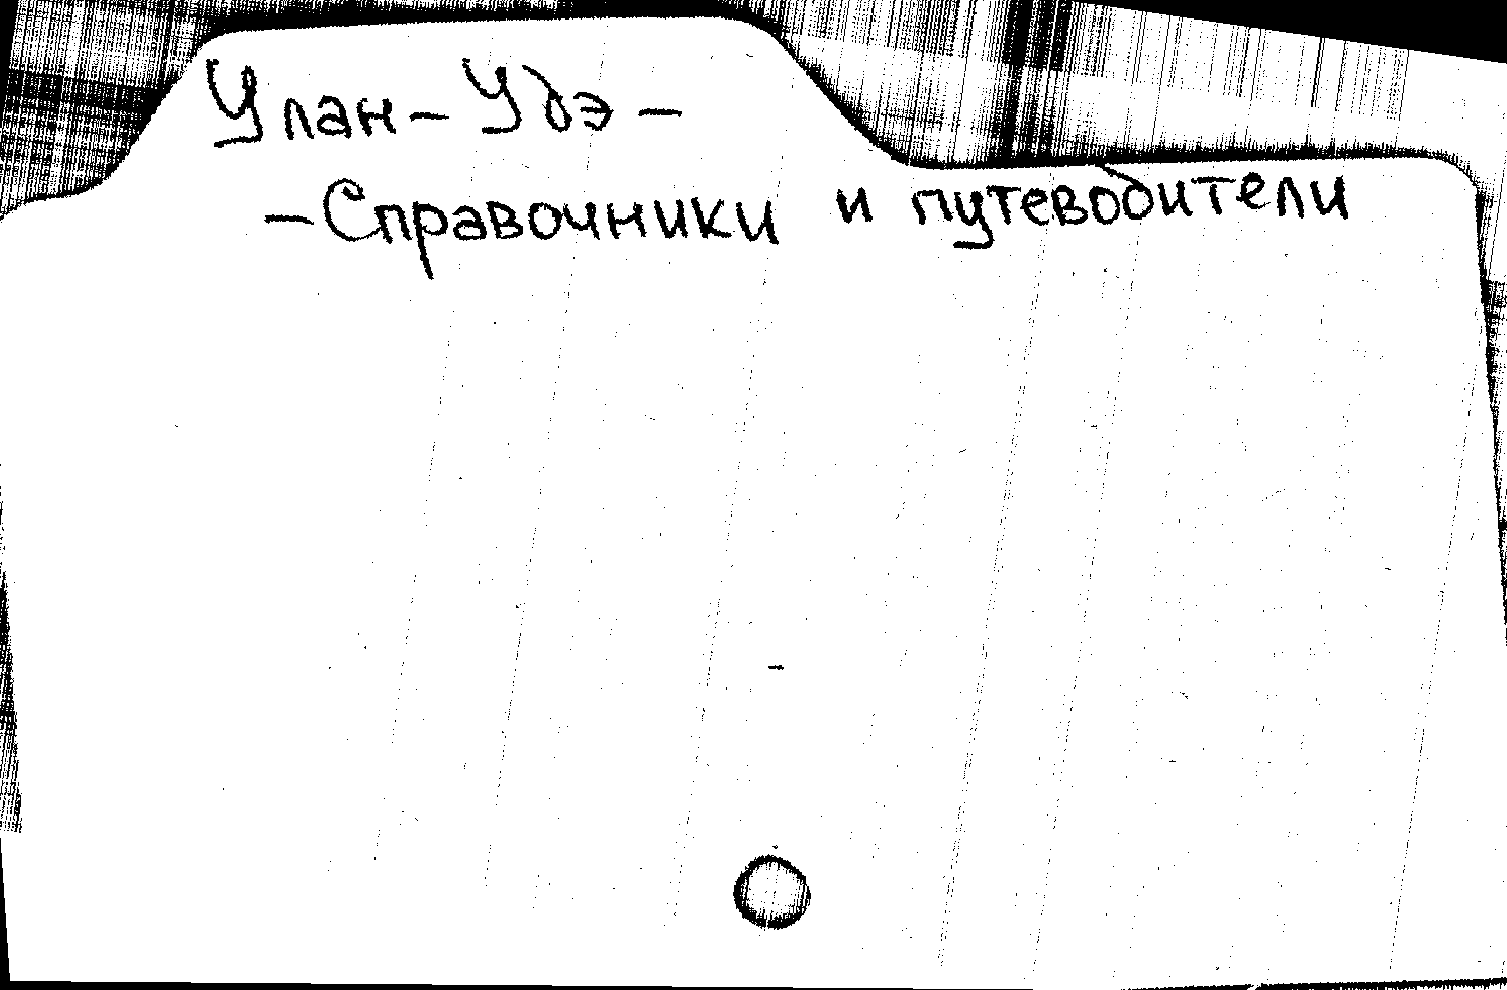 Улан-Удэ -
- Справочники и путеводители